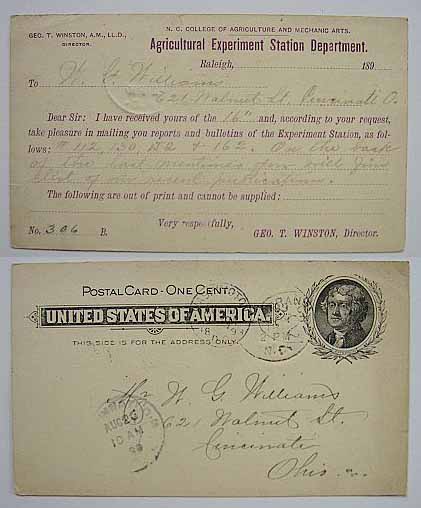 GEO. T. WINSTON, A.M., LL.D.,
DIRECTOR.
N. C. COLLEGE OF AGRICULTURE AND MECHANIC ARTS.
Agricultural Experiment Station Department.
Raleigh, 189
To W. G. Williams
621 Walnut St. Cincinnati O.
Dear Sir: I have received yours of the 16" and, according to your request,
take pleasure in mailing you reports and bulletins of the Experiment Station, as fol-
lows: # 112, 130, & 162. On the back
of the last mentioned you will find
list of our recent publications.
The following are out of print and cannot be supplied:
Very respectfully,
No. 306 B. GEO. T. WINSTON, Director.
POSTAL CARD - ONE CENT.
UNITED STATES OF AMERICA.
THIS SIDE IS FOR THE ADDRESS ONLY.
2 PM
Mr W. G. Williams
621 Walnut St.
Cincinnati
Ohio.
AUG 26
10 AM
99